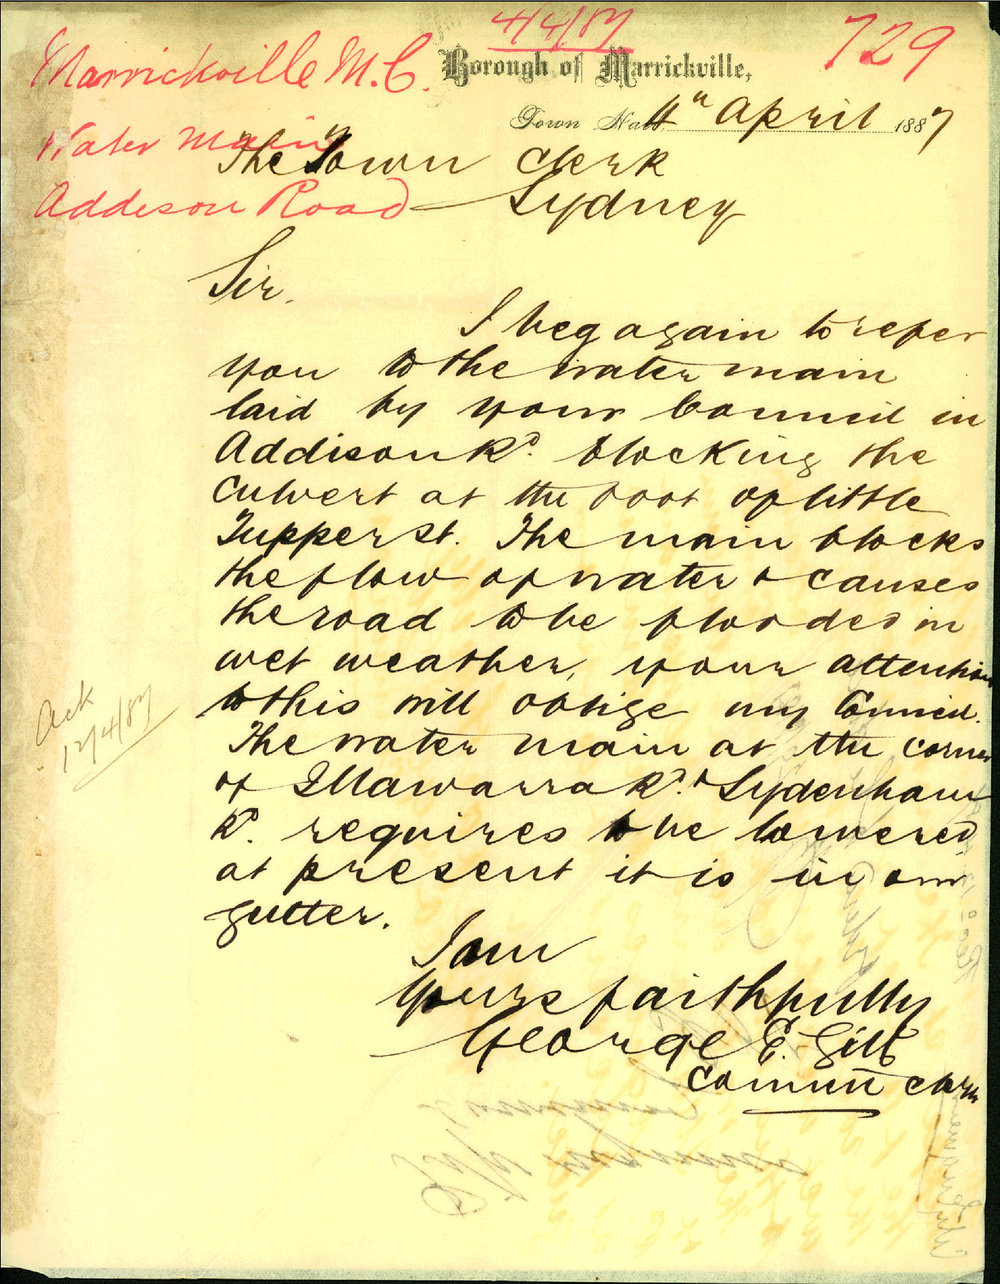 4/4/87
729
Marrickville M.C.
Borough of Marrickville,
Town Hall, 4th April 1887
Water Main
Addison Road
The Town Clerk
Sydney
Sir,
I beg again to refer
you to the water main
laid by your Council in
Addison Rd. blocking the
culvert at the foot of little
Tupper St. The main blocks
the flow of water & causes
the road to be flooded in
wet weather, your attention
to this will oblige my Council.
The water main at the corner
of Illawarra Rd. & Sydenham
Rd. requires to be lowered
at present it is in our
gutter.
Ack
12/4/87
I am
Yours faithfully
George E. Gill
Council Clerk